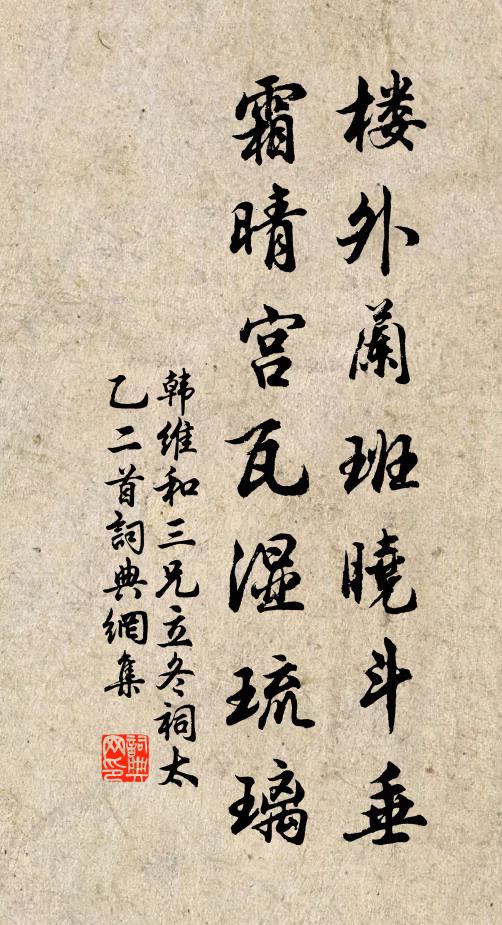 楼外蘭班曉斗垂
霜晴宫瓦湿琉璃
韩維和三兄立冬祠太
乙二首詞典網集
詞典
网印